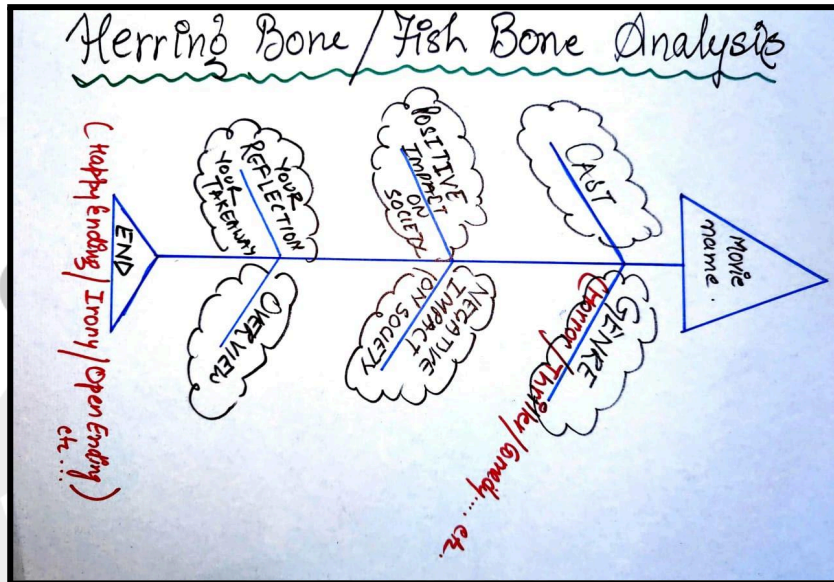 Herring Bone / Fish Bone Analysis
Movie
name.
CAST
GENRE
(Horror/Thriller/Comedy..... etc.
POSITIVE
IMPACT
ON
SOCIETY
NEGATIVE
IMPACT
ON SOCIETY
YOUR
REFLECTION
YOUR
TAKEAWAY
OVERVIEW
END
(Happy Ending/Irony/Open Ending)
etc....